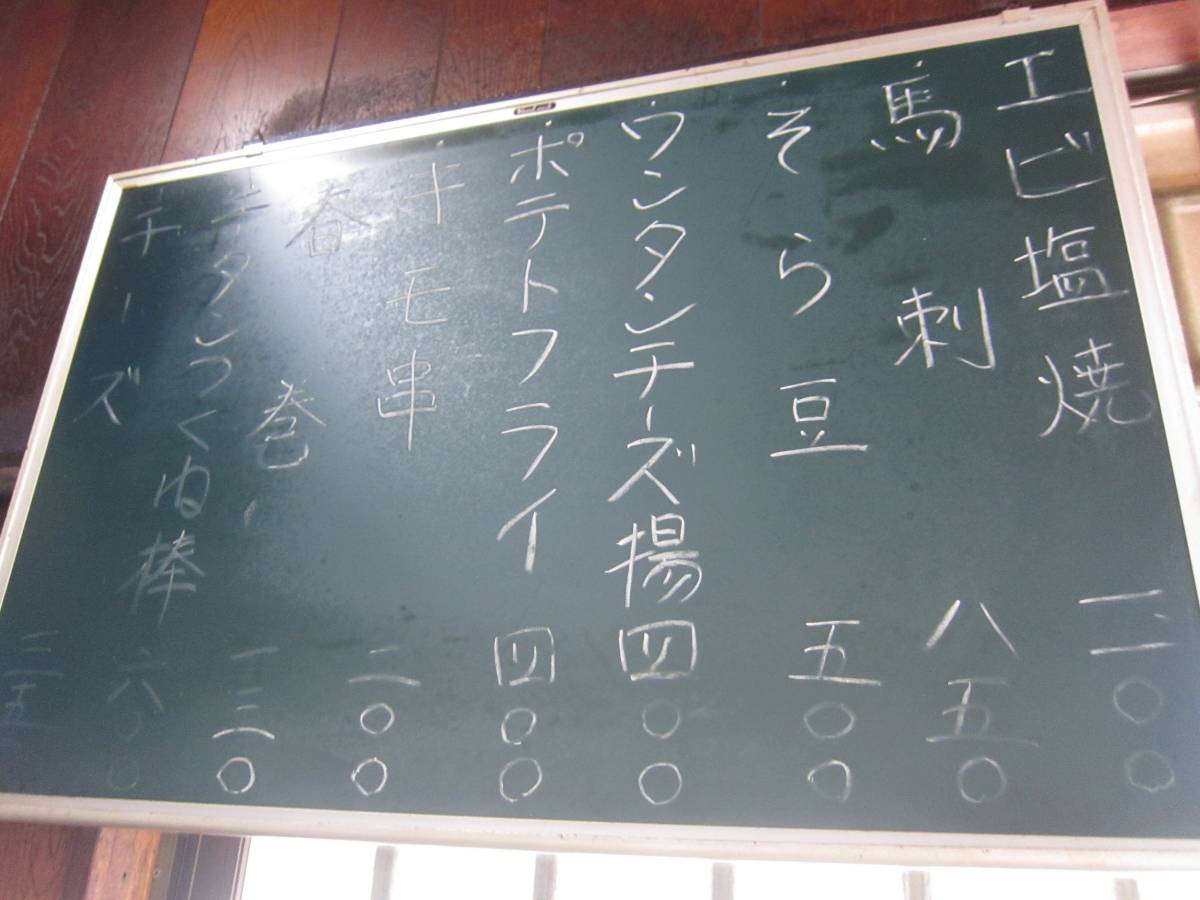 エビ塩焼 〇〇
馬刺 八五〇
そら豆 五〇〇
ワンタンチーズ揚 四〇〇
ポテトフライ 四〇〇
キモ串 二〇〇
春巻 一三〇
牛タンつくね棒 六〇〇
チーズ 三五